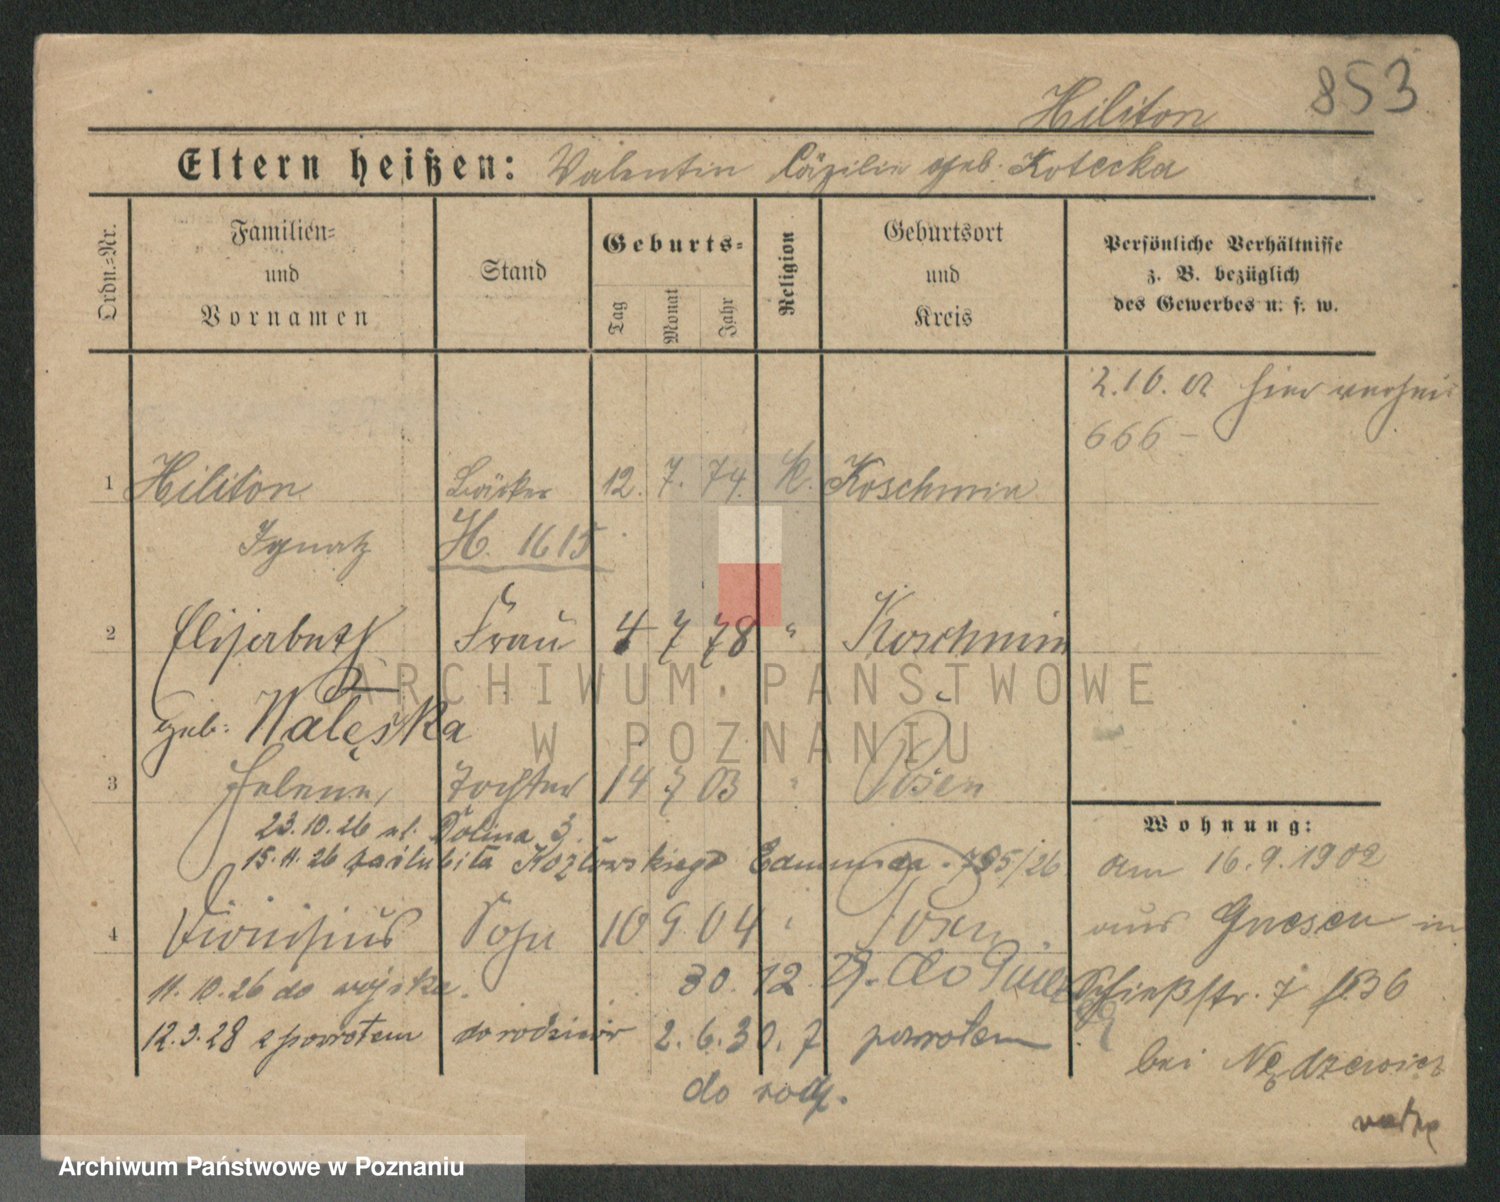 853
Hiliton
Eltern heißen: Valentin Cäzilie geb. Kotecka
Ordn.-Nr.
Familien- und Vornamen
Stand
Geburts-
Tag Monat Jahr
Religion
Geburtsort und Kreis
Persönliche Verhältnisse z. B. bezüglich des Gewerbes u. s. w.
2.10.02 hier
666 –
1 Hiliton Bäcker 12. 7. 74. K. Koschmin
Ignatz H. 1615
2 Elisabeth Frau 4 7 78 " Koschmin
geb: Walęska
3 Helene, Tochter 14 7 03 " Posen
23.10.26 ul. Dolina 3.
15.11.26 zaślubiła Kozłowskiego Edmunda 795/26
4 Dionisius Sohn 10 9 04 " Posen
11.10.26 do wojska. 30. 12. 29. do
12.3.28 z powrotem do rodziców 2. 6. 30. z powrotem
do rodz.
Wohnung:
am 16.9.1902
aus Gnesen in
Schießstr. 7
bei
ARCHIWUM PAŃSTWOWE
W POZNANIU
Archiwum Państwowe w Poznaniu